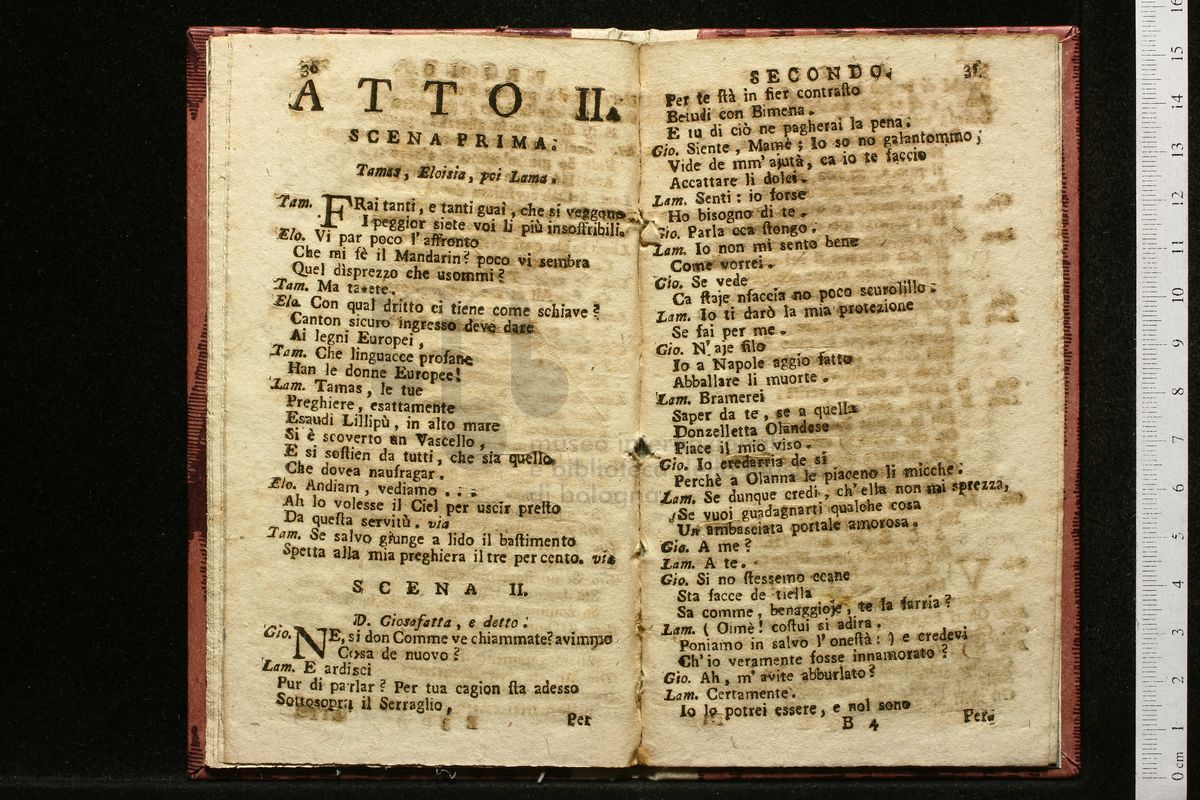 30
ATTO II.
SCENA PRIMA.
Tamas, Eloisia, poi Lama.
Tam. FRai tanti, e tanti guai, che si veggono
I peggior siete voi li più insoffribili.
Elo. Vi par poco l' affronto
Che mi fè il Mandarin? poco vi sembra
Quel disprezzo che usommi?
Tam. Ma tacete.
Elo. Con qual dritto ci tiene come schiave?
Canton sicuro ingresso deve dare
Ai legni Europei,
Tam. Che linguacce profane
Han le donne Europee!
Lam. Tamas, le tue
Preghiere, esattamente
Esaudì Lillipù, in alto mare
Si è scoverto un Vascello,
E si sostien da tutti, che sia quello
Che dovea naufragar.
Elo. Andiam, vediamo . . .
Ah lo volesse il Ciel per uscir presto
Da questa servitù. via
Tam. Se salvo giunge a lido il bastimento
Spetta alla mia preghiera il tre per cento. via
SCENA II.
D. Giosafatta, e detto.
Gio. NE, si don Comme ve chiammate? avimmo
Cosa de nuovo?
Lam. E ardisci
Pur di parlar? Per tua cagion sta adesso
Sottosopra il Serraglio,
Per
SECONDO. 31
Per te stà in fier contrasto
Betudi con Bimena.
E tu di ciò ne pagherai la pena.
Gio. Siente, Mamè; Io so no galantommo;
Vide de mm' ajutà, ca io te faccio
Accattare li dolci.
Lam. Senti: io forse
Ho bisogno di te.
Gio. Parla cca stongo.
Lam. Io non mi sento bene
Come vorrei.
Gio. Se vede
Ca staje nfaccia no poco scurolillo.
Lam. Io ti darò la mia protezione
Se fai per me.
Gio. N' aje filo
Io a Napole aggio fatto
Abballare li muorte.
Lam. Bramerei
Saper da te, se a quella
Donzelletta Olandese
Piace il mio viso.
Gio. Io credarria de si
Perchè a Olanna le piaceno li micche.
Lam. Se dunque credi, ch' ella non mi sprezza,
Se vuoi guadagnarti qualche cosa
Un ambasciata portale amorosa.
Gio. A me?
Lam. A te.
Gio. Si no stessemo ccane
Sta facce de tiella
Sa comme, benaggioje, te la farria?
Lam. ( Oimè! costui si adira.
Poniamo in salvo l' onestà: ) e credevi
Ch' io veramente fosse innamorato?
Gio. Ah, m' avite abburlato?
Lam. Certamente.
Io lo potrei essere, e nol sono
B 4 Per
museo internazionale
e biblioteca
di bologna